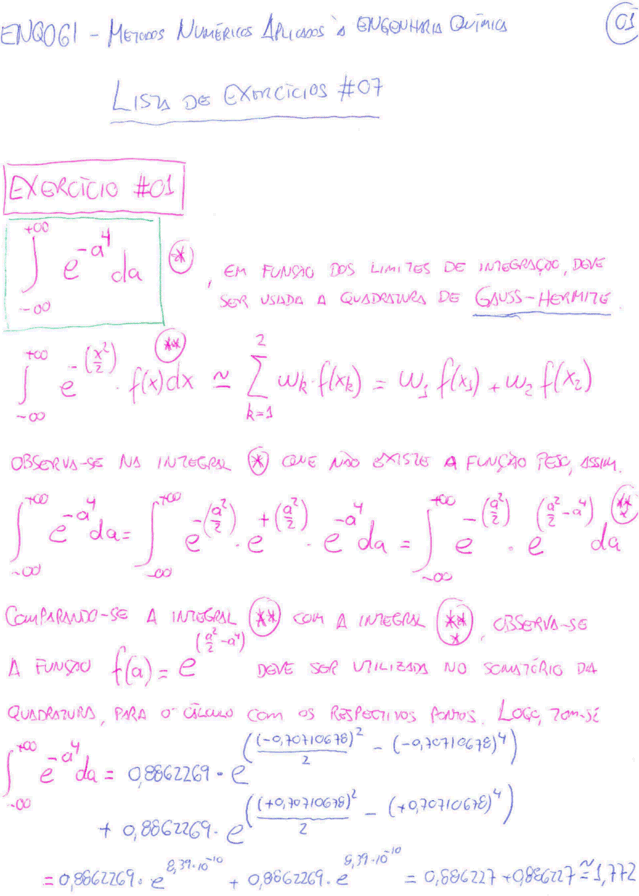 ENQ061 - MÉTODOS NUMÉRICOS APLICADOS À ENGENHARIA QUÍMICA 01
LISTA DE EXERCÍCIOS #07
EXERCÍCIO #01
∫_{-∞}^{+∞} e^{-a^4} da (*), EM FUNÇÃO DOS LIMITES DE INTEGRAÇÃO, DEVE
SER USADA A QUADRATURA DE GAUSS-HERMITE.
∫_{-∞}^{+∞} e^{-(x²/2)} · f(x)dx (**) ≃ Σ_{k=1}^{2} w_k·f(x_k) = w_1 f(x_1) + w_2 f(x_2)
OBSERVA-SE NA INTEGRAL (*) QUE NÃO EXISTE A FUNÇÃO PESO, ASSIM.
∫_{-∞}^{+∞} e^{-a^4} da = ∫_{-∞}^{+∞} e^{-(a²/2)} · e^{+(a²/2)} · e^{-a^4} da = ∫_{-∞}^{+∞} e^{-(a²/2)} · e^{(a²/2 - a^4)} da (***)
COMPARANDO-SE A INTEGRAL (**) COM A INTEGRAL (***), OBSERVA-SE
A FUNÇÃO f(a) = e^{(a²/2 - a^4)} DEVE SER UTILIZADA NO SOMATÓRIO DA
QUADRATURA, PARA O CÁLCULO COM OS RESPECTIVOS PONTOS. LOGO, TEM-SE
∫_{-∞}^{+∞} e^{-a^4} da = 0,8862269 · e^{((-0,70710678)²/2 - (-0,70710678)^4)}
+ 0,8862269 · e^{((+0,70710678)²/2 - (+0,70710678)^4)}
= 0,8862269 · e^{8,39·10^{-10}} + 0,8862269 · e^{8,39·10^{-10}} = 0,886227 + 0,886227 ≅ 1,772